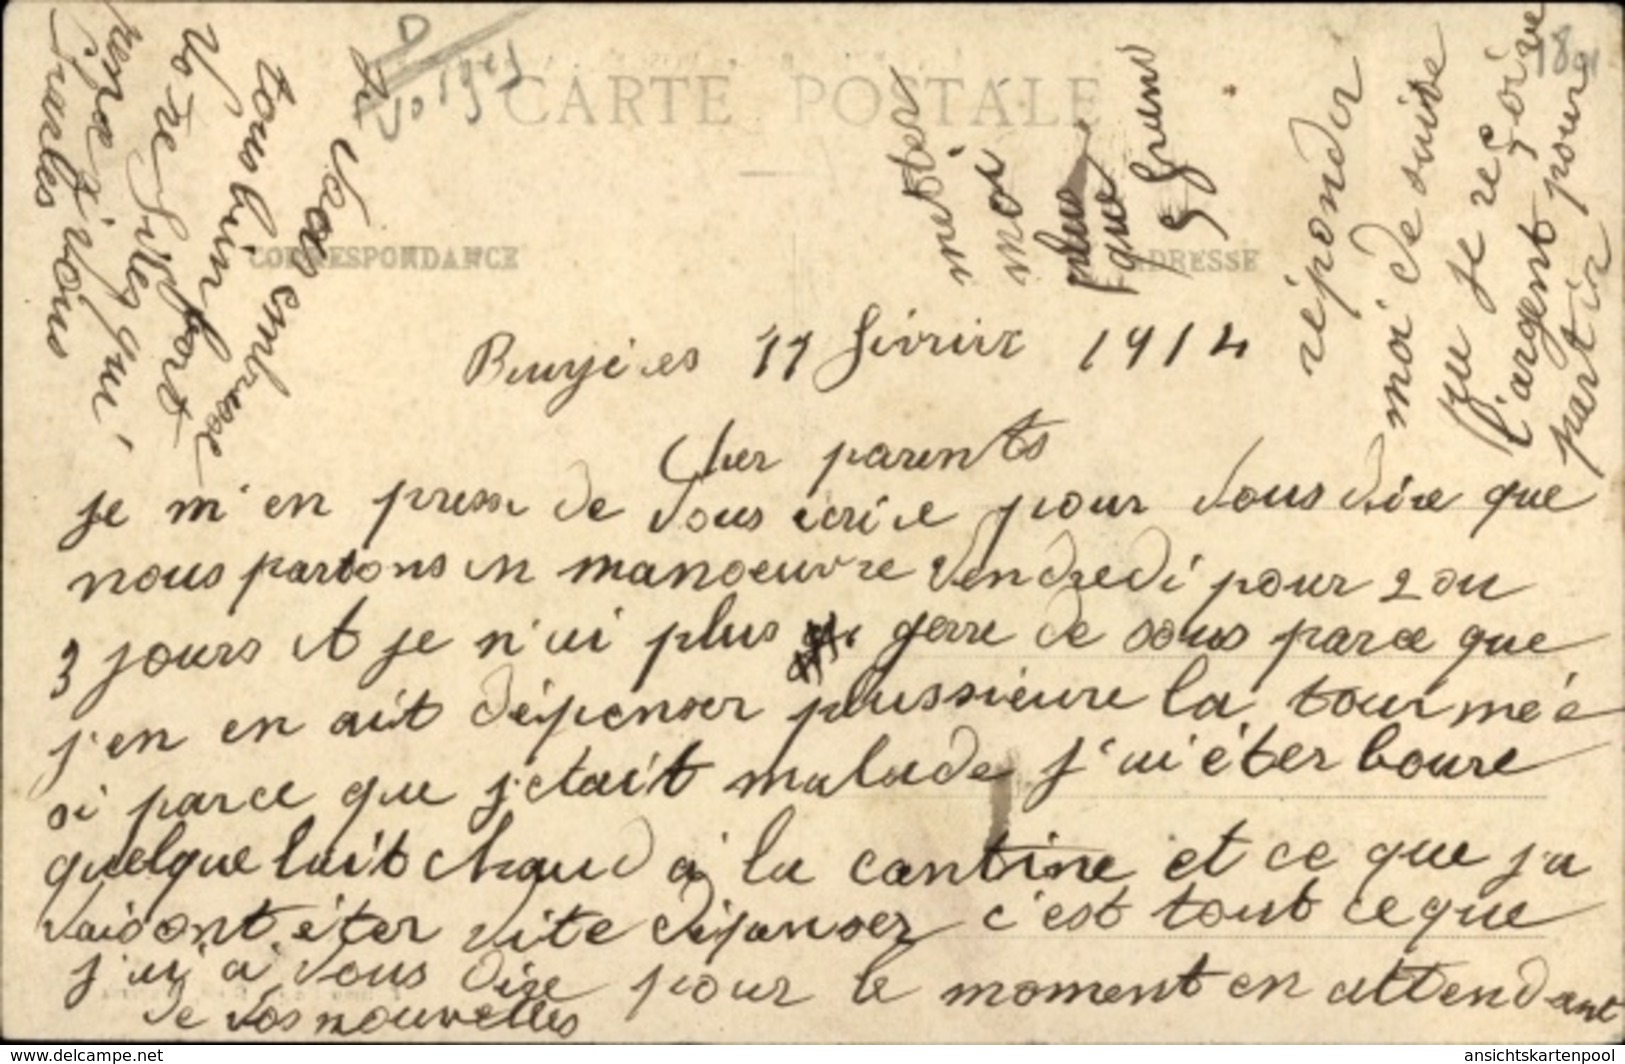 CARTE POSTALE
CORRESPONDANCE
ADRESSE
Bruyères 11 février 1914
Cher parents
je m'en presse de vous écrire pour vous dire que
nous partons en manoeuvre vendredi pour 2 ou
3 jours et je n'ai plus gerre de sous parce que
j'en en ait dépenser plussieure la tournée
si parce que j'etait malade j'ai éter boure
quelque lait chaud à la cantine et ce que j'a
vais ont éter vite dépanser c'est tout ce que
j'ai à vous dire pour le moment en attendant
de vos nouvelles
je vous embrasse
tous bien fort
votre fils qui
pense à vous
Charles
répondez
moi de suite
que je reçoive
l'argent pour
partir
metter
moi
que
www.delcampe.net
ansichtskartenpool